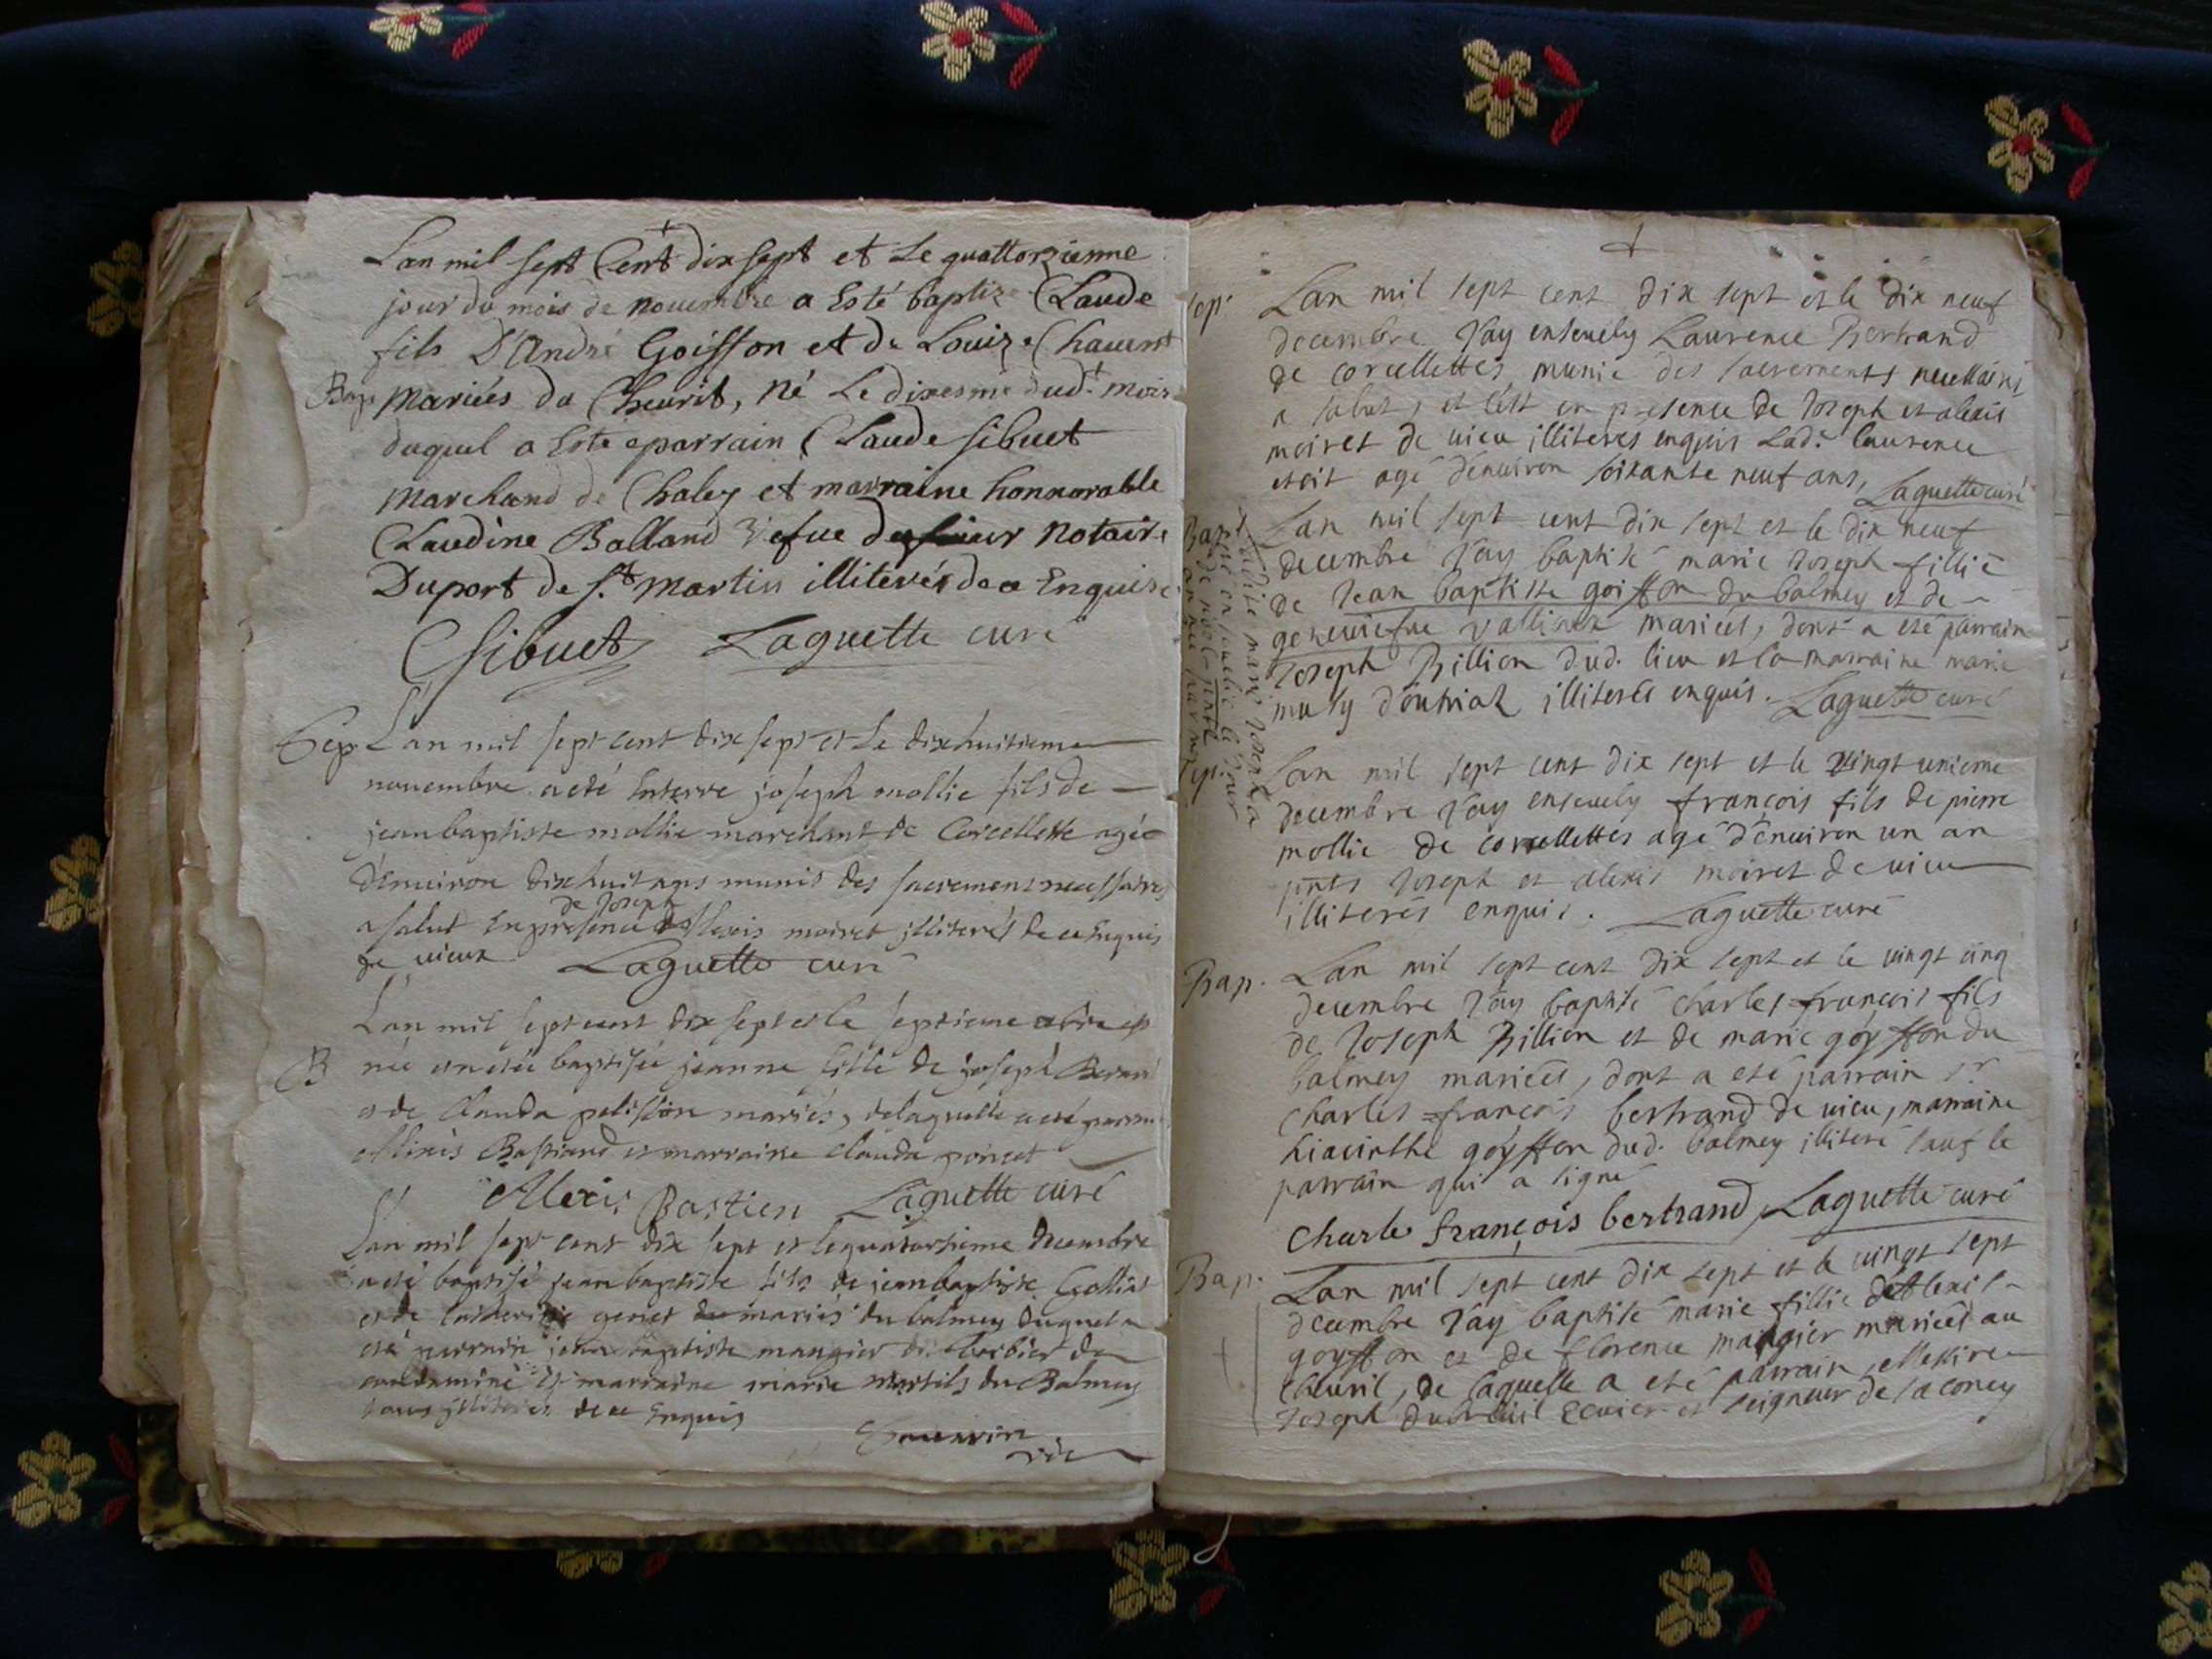 Lan mil sept Cent dix sept et Le quattorzienne
jour du mois de novembre a Esté baptizé Claude
fils D'André Goiffon et de Louize Chavent
Bap. Mariés du Cheurit, Né Le dixesme dud.t mois
duquel a Esté parrain Claude sibuet
Marchand de Chaley et marraine honnorable
Claudine Balland vefue du sieur Notaire
Duport de S.t Martin illiterés de ce Enquise
CSibuet Laguette curé
Sep. L'an mil sept cent dix sept et Le dixhuitieme
novembre a eté Enterre joseph mollie fils de
jean baptiste mollie marchant de Corcellette agée
d'environ dixhuit ans munis des sacremens necessaires
de Joseph
a salut En presence et Alexis moiret illiterés de ce Enquis
de vieux Laguette curé
L'an mil sept cent dix sept et le septieme xbre est
B née et eté baptisée jeanne fille de joseph
et de Clauda pelisson mariés, de laquelle a eté parrain
Allexis Bastiand et marraine Clauda poncet
Alexis Bastien Laguette curé
L'an mil sept cent dix sept et le quatorsieme Decembre
a eté baptisé jean baptiste fils de jean baptiste
et de Catherine genet mariés du balmey duquel a
eté parrain jean baptiste mangier du de
et marraine marie du Balmey
tous illiteres de ce Enquis
+
Sep. Lan mil sept cent dix sept et le dix neuf
decembre J'ay ensevely Laurence Bertrand
de corcellettes munie des sacrements necessaires
a salut, et c'est en presence de Joseph et alexis
moiret de vieu illiteres enquis Lad.e laurence
etoit agé d'environ soixante neuf ans, Laguette curé
Bap. Lan mil sept cent dix sept et le dix neuf
decembre J'ay baptisé marie Joseph fillie
de Jean baptiste goiffon du balmey et de
geneviefve vallinex mariees, dont a eté parrain
Joseph Billion dud. lieu et la marraine marie
muly d'outriaz illiterés enquis. Laguette curé
Sep. Lan mil sept cent dix sept et le vingt unieme
decembre J'ay ensevely françois fils de pierre
mollie de corcellettes agé d'environ un an
pnts Joseph et alexis moiret de vieu
illiterés enquis. Laguette curé
Bap. Lan mil sept cent dix sept et le vingt cinq
decembre J'ay baptisé charles françois fils
de Joseph Billion et de marie goyffon du
balmey mariees, dont a eté parrain sr
charles françois bertrand de vieu, marraine
hiacinthe goyffon dud. balmey illiteré sauf le
parrain qui a signé
Charle françois bertrand, Laguette curé
Bap. Lan mil sept cent dix sept et le vingt sept
decembre J'ay baptisé marie fillie d'Alexis
goyffon et de florence mangier mariees au
cheuril, de laquelle a eté parrain, Messire
Joseph dubreuil Ecuier et seigneur de sacconey